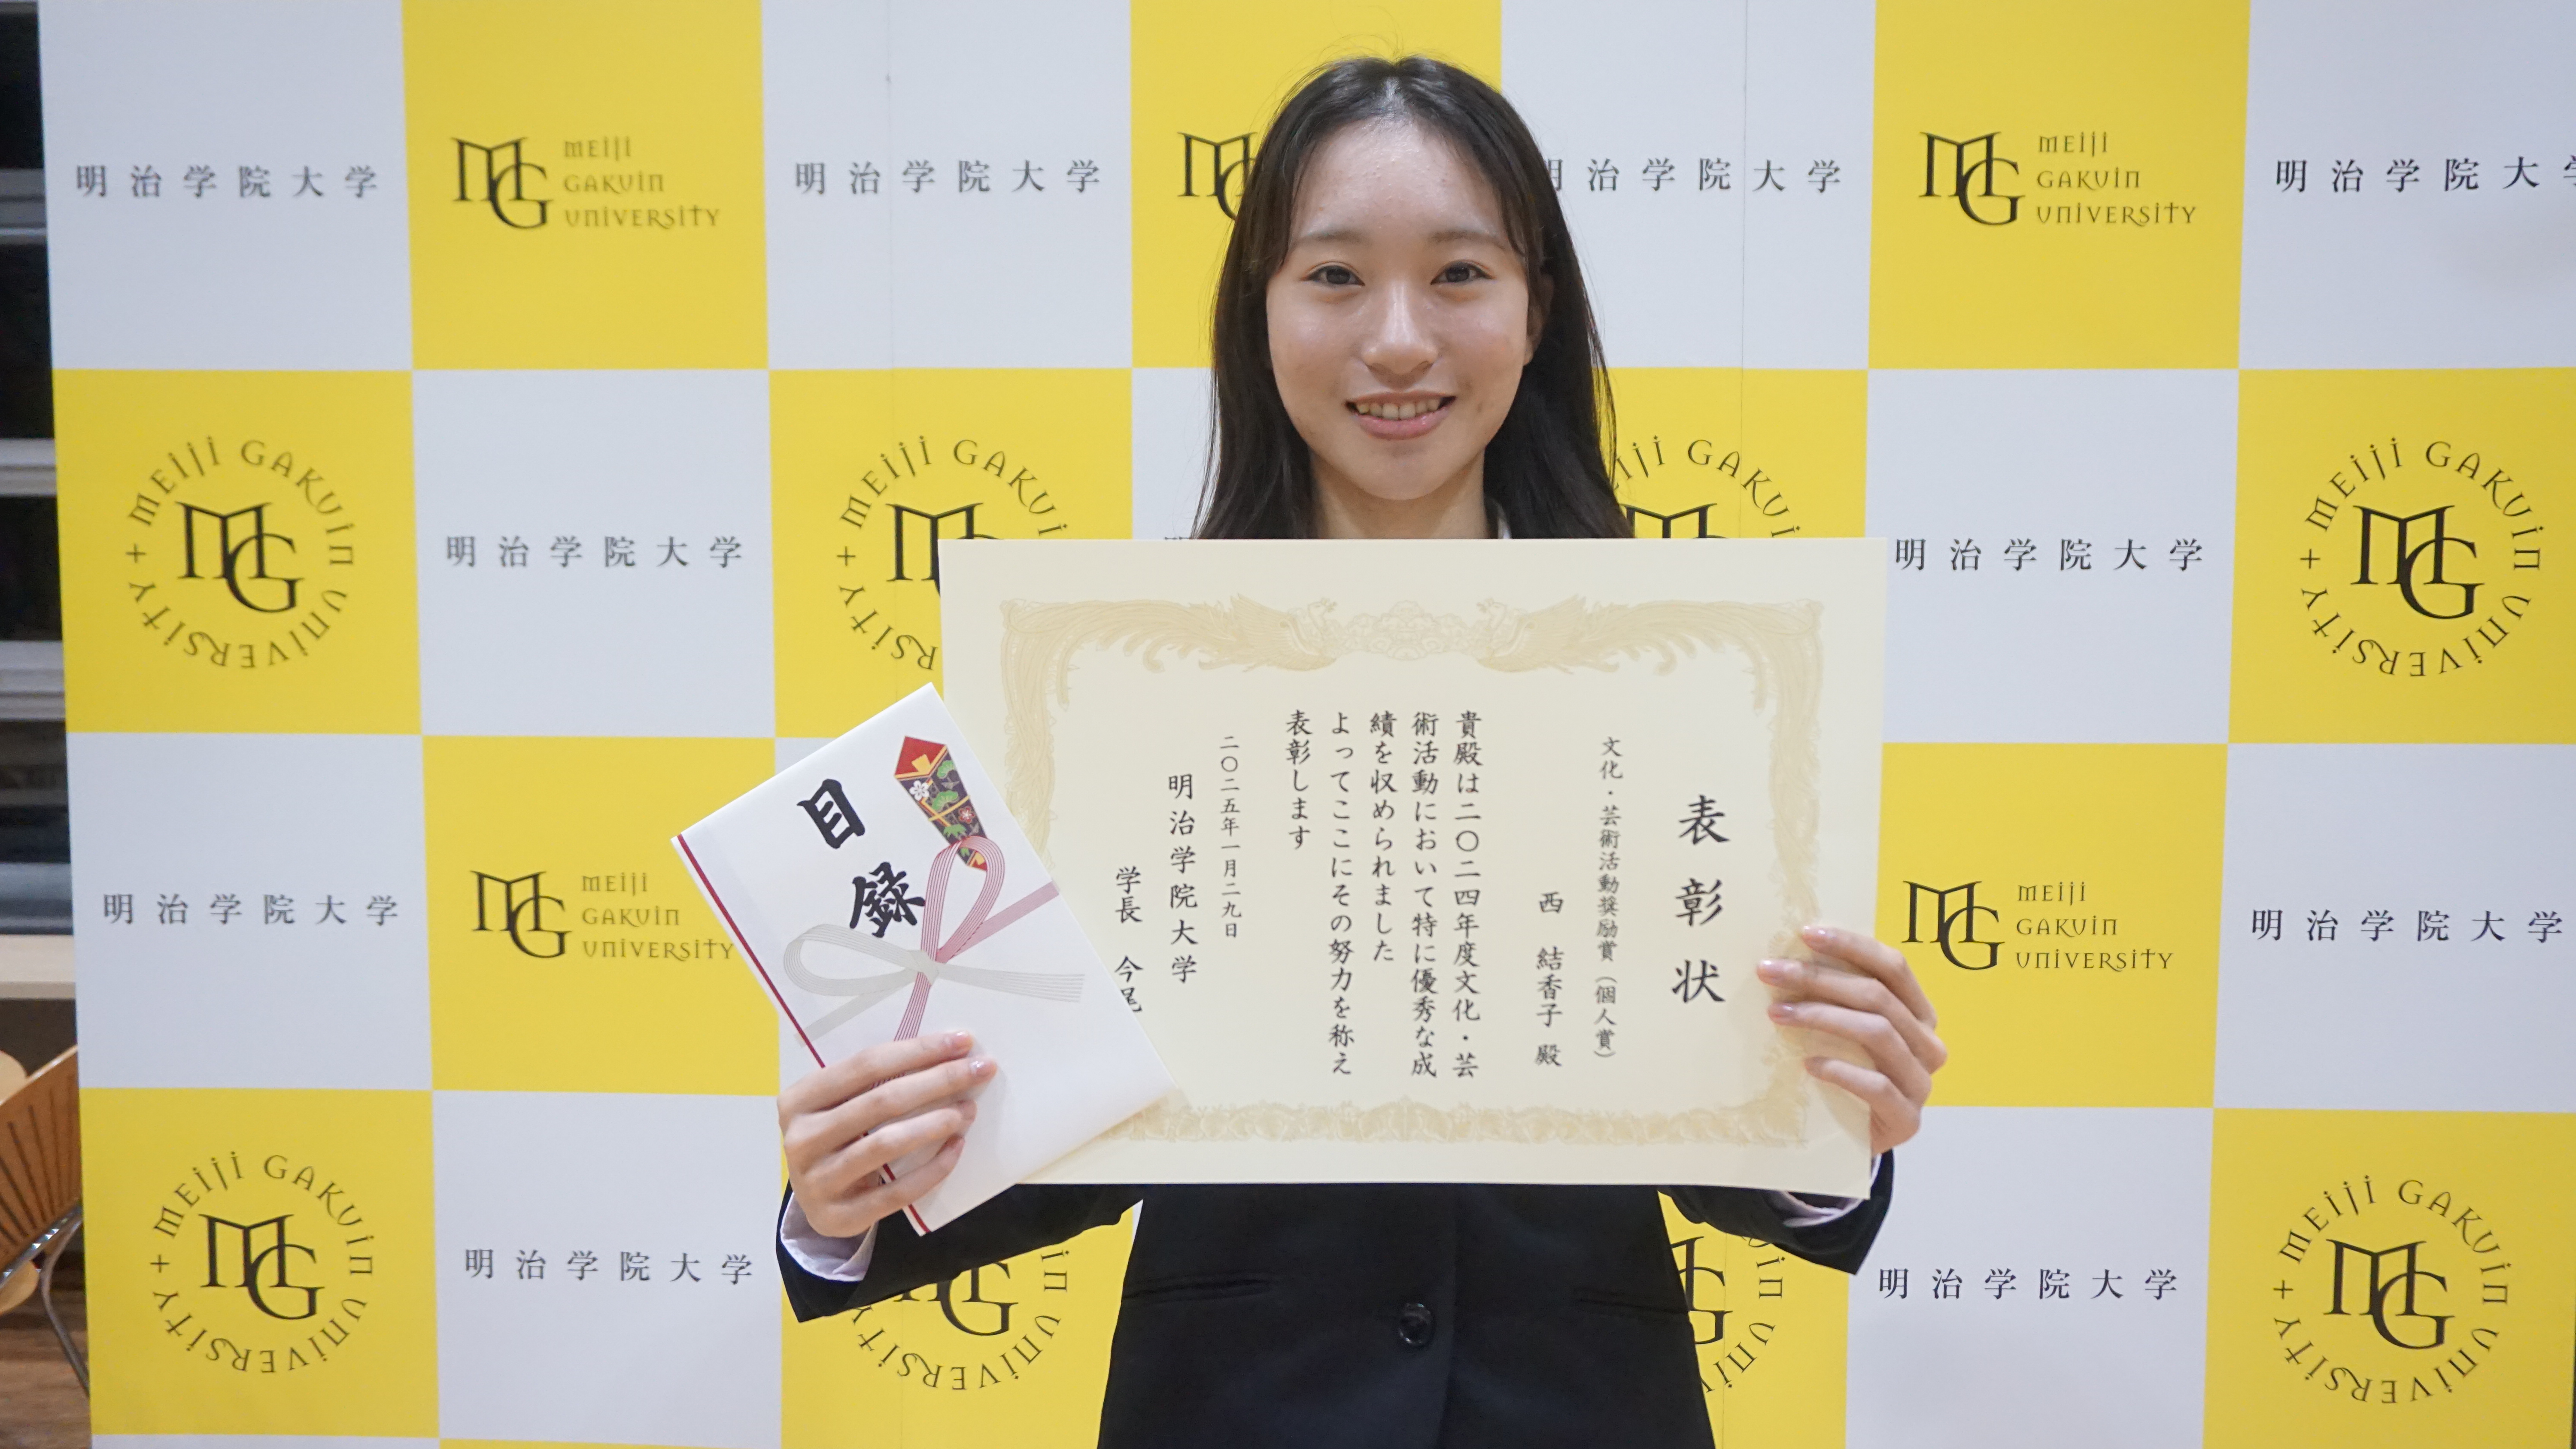 明治学院大学
MG MEIJI GAKUIN UNIVERSITY
明治学院大学
MG
明治学院大学
MG MEIJI GAKUIN UNIVERSITY
明治学院大
MEIJI GAKUIN UNIVERSITY
MG
明治学院大学
MEIJI GAKUI
RSITY
明治学院大学
MEIJI GAKUIN UNIVERSITY
MG
表彰状
文化・芸術活動奨励賞(個人賞)
西 結香子 殿
貴殿は二〇二四年度文化・芸
術活動において特に優秀な成
績を収められました
よってここにその努力を称え
表彰します
二〇二五年一月二九日
明治学院大学
学長 今尾
目録
明治学院大学
MG MEIJI GAKUIN UNIVERSITY
MG MEIJI GAKUIN UNIVERSITY
明治学院大学
MEIJI GAKUIN UNIVERSITY
MG
明治学院大学
明治学院大学
MEIJI GAKUIN UNIVERSITY
MG